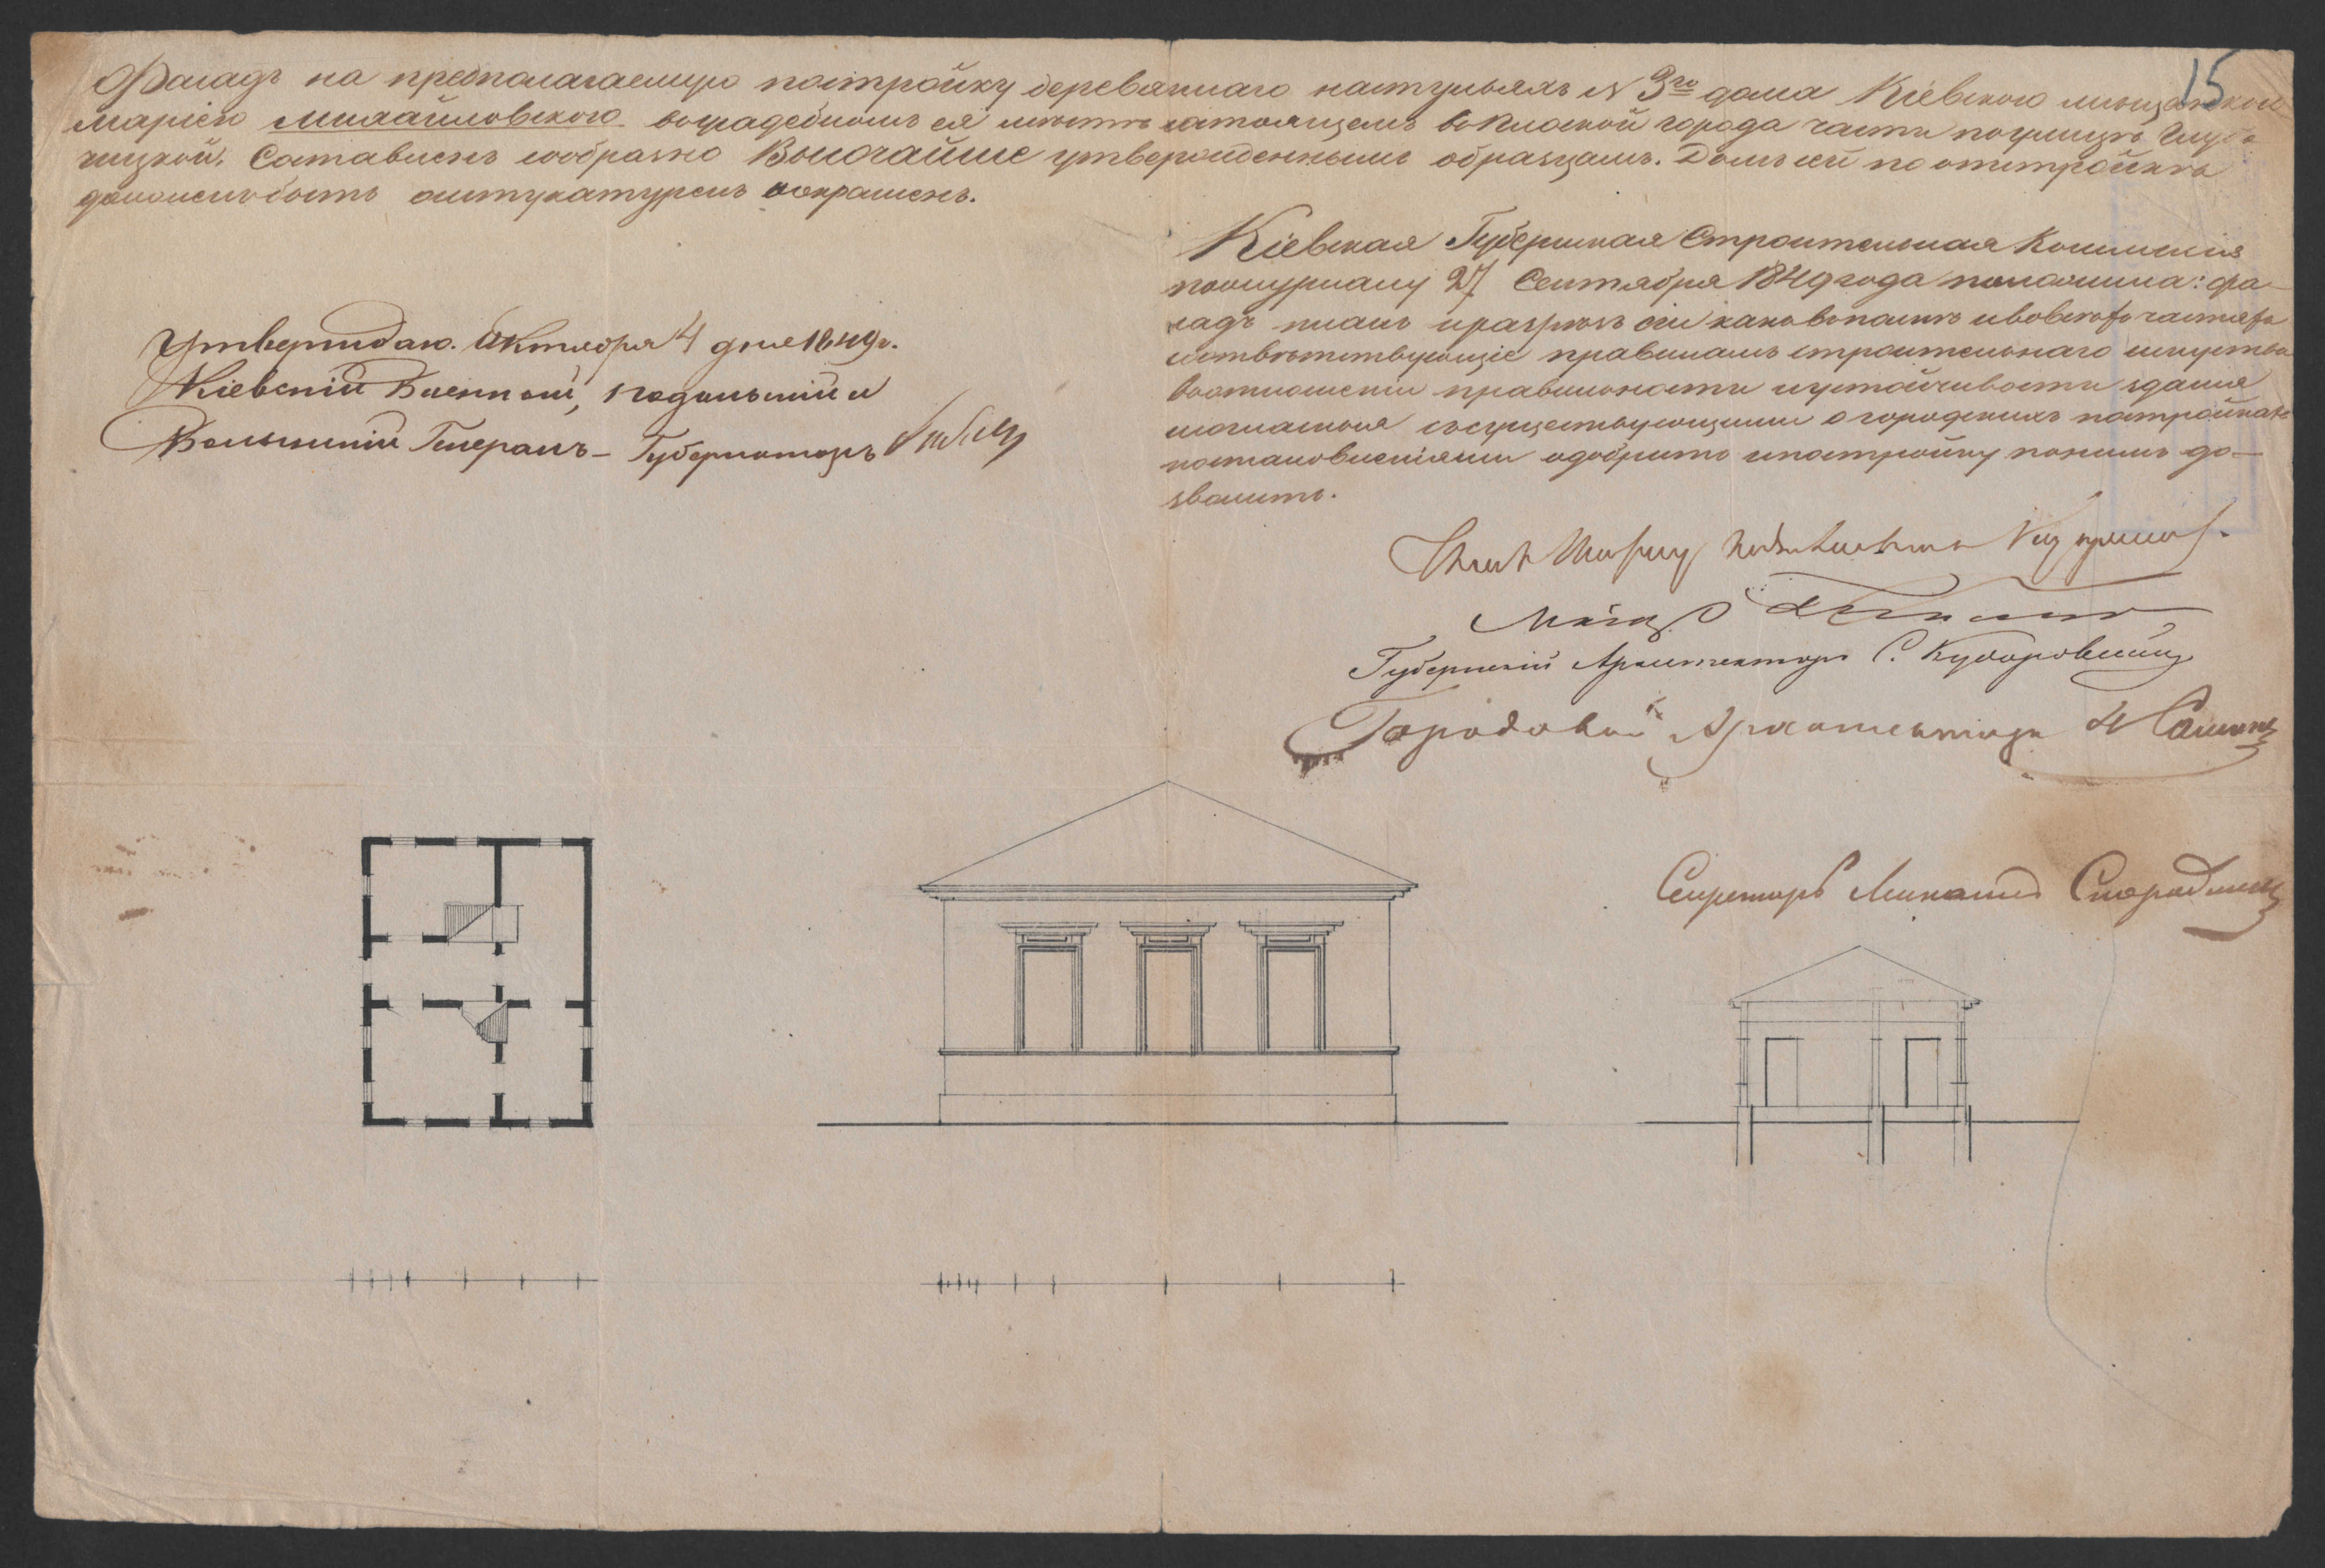 15
Фасадъ на предполагаемую постройку деревяннаго настульяхъ N 3го дома Кіевскою мѣщанкою
Маріею Михайловскою воусадебномъ ея мѣстѣ состоящемъ воПлоской города части поулицѣ Глубо
чицкой. Составленъ сообразно Высочайше утвержденнымъ образцамъ. Домъ сей по отстройкѣ
долженъ быть оштукатуренъ и окрашенъ.
Кіевская Губернская Строительная Коммисія
пожурналу 27 Сентября 1849 года положила: фа-
садъ планъ и разрѣзъ сей каковъ получъ и во всѣхъ частяхъ
соотвѣтствующіе правиламъ строительнаго искуства
воотношеніи правильности и устойчивости зданія
и согласныя съ существующими о городскихъ постройкахъ
постановленіями одобрить и постройку по нимъ до-
зволить.
Утверждаю. Октября 4 дня 1849 г.
Кіевскій Военный, Подольскій и
Волынскій Генералъ-Губернаторъ Бибиковъ
Маіоръ
Губернскій Архитекторъ С.
Городовой Архитекторъ
Секретарь